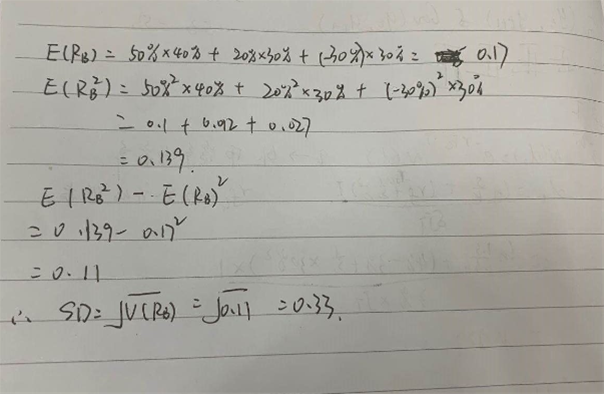 E(R_B) = 50% × 40% + 20% × 30% + (-30%) × 30% = 0.17
E(R_B²) = 50%² × 40% + 20%² × 30% + (-30%)² × 30%
= 0.1 + 0.012 + 0.027
= 0.139.
E(R_B²) - E(R_B)²
= 0.139 - 0.17²
= 0.11
∴ SD = √V(R_B) = √0.11 = 0.33.